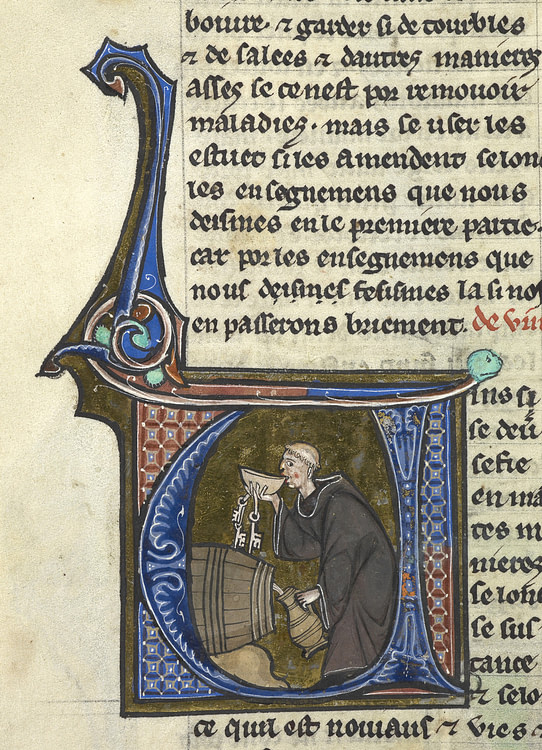 boiure ⁊ garder si de tourbles
⁊ de salees ⁊ dautres manieres
asses se ce nest por remouoir
maladies. mais se user les
estuet si les amendent selonc
les ensegnemens que nous
desimes en le premiere partie.
car por les ensegnemens que
nous desimes fesismes la si nos
en passerons briement. de vin
ins si
se deu
sefie
en ma
tes m
nieres
se lonc
se sus
tance
⁊ selo
ce quil est nouiaus ⁊ vies ⁊